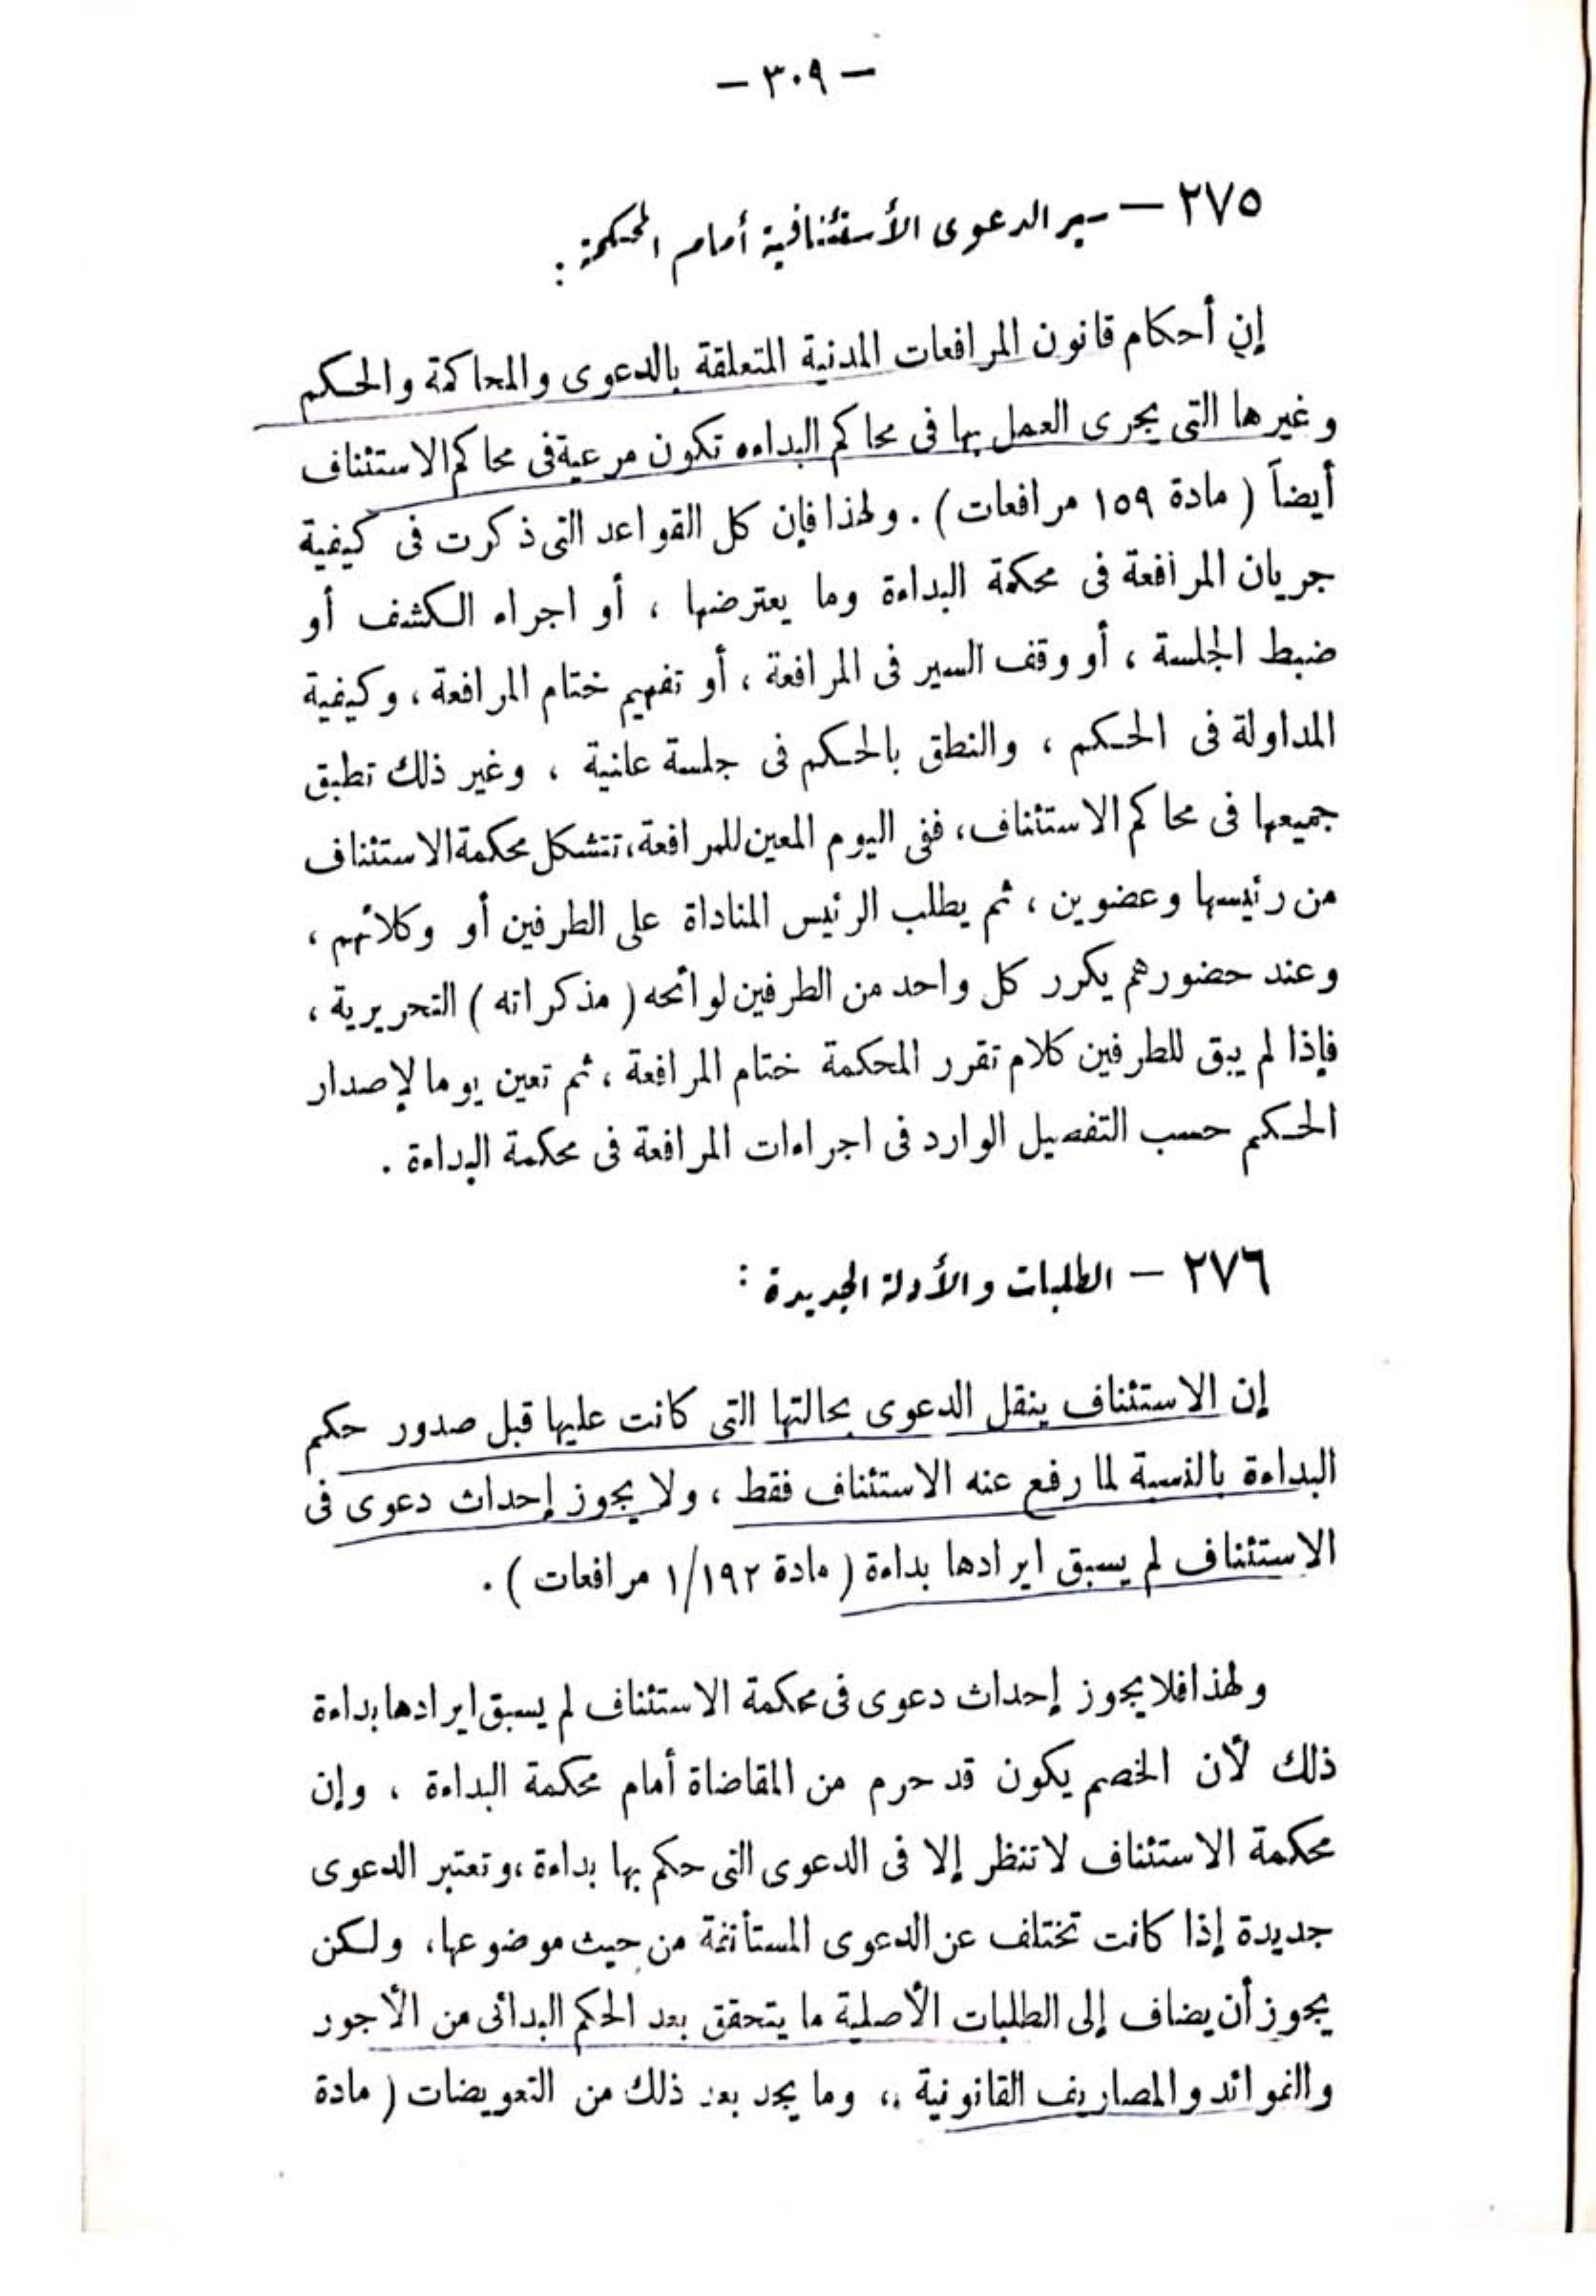 — ٣٠٩ —
٢٧٥ — سير الدعوى الأستئنافية أمام المحكمة :
إن أحكام قانون المرافعات المدنية المتعلقة بالدعوى والمحاكمة والحكم
وغيرها التى يجرى العمل بها فى محاكم البداءه تكون مرعية فى محاكم الاستئناف
أيضاً ( مادة ١٥٩ مرافعات ) . ولهذا فإن كل القواعد التى ذكرت فى كيفية
جريان المرافعة فى محكمة البداءة وما يعترضها ، أو اجراء الكشف أو
ضبط الجلسة ، أو وقف السير فى المرافعة ، أو تفهيم ختام المرافعة ، وكيفية
المداولة فى الحكم ، والنطق بالحكم فى جلسة علنية ، وغير ذلك تطبق
جميعها فى محاكم الاستئناف ، ففى اليوم المعين للمرافعة ، تتشكل محكمة الاستئناف
من رئيسها وعضوين ، ثم يطلب الرئيس المناداة على الطرفين أو وكلائهم ،
وعند حضورهم يكرر كل واحد من الطرفين لوائحه ( مذكراته ) التحريرية ،
فإذا لم يبق للطرفين كلام تقرر المحكمة ختام المرافعة ، ثم تعين يوما لإصدار
الحكم حسب التفصيل الوارد فى اجراءات المرافعة فى محكمة البداءة .
٢٧٦ — الطلبات والأدلة الجديدة :
إن الاستئناف ينقل الدعوى بحالتها التى كانت عليها قبل صدور حكم
البداءة بالنسبة لما رفع عنه الاستئناف فقط ، ولا يجوز إحداث دعوى فى
الاستئناف لم يسبق ايرادها بداءة ( مادة ١/١٩٢ مرافعات ) .
ولهذا فلا يجوز إحداث دعوى فى محكمة الاستئناف لم يسبق ايرادها بداءة
ذلك لأن الخصم يكون قد حرم من المقاضاة أمام محكمة البداءة ، وإن
محكمة الاستئناف لا تنظر إلا فى الدعوى التى حكم بها بداءة ، وتعتبر الدعوى
جديدة إذا كانت تختلف عن الدعوى المستأنفة من حيث موضوعها ، ولكن
يجوز أن يضاف إلى الطلبات الأصلية ما يتحقق بعد الحكم البدائى من الأجور
والفوائد والمصاريف القانونية ،، وما يجد بعد ذلك من التعويضات ( مادة